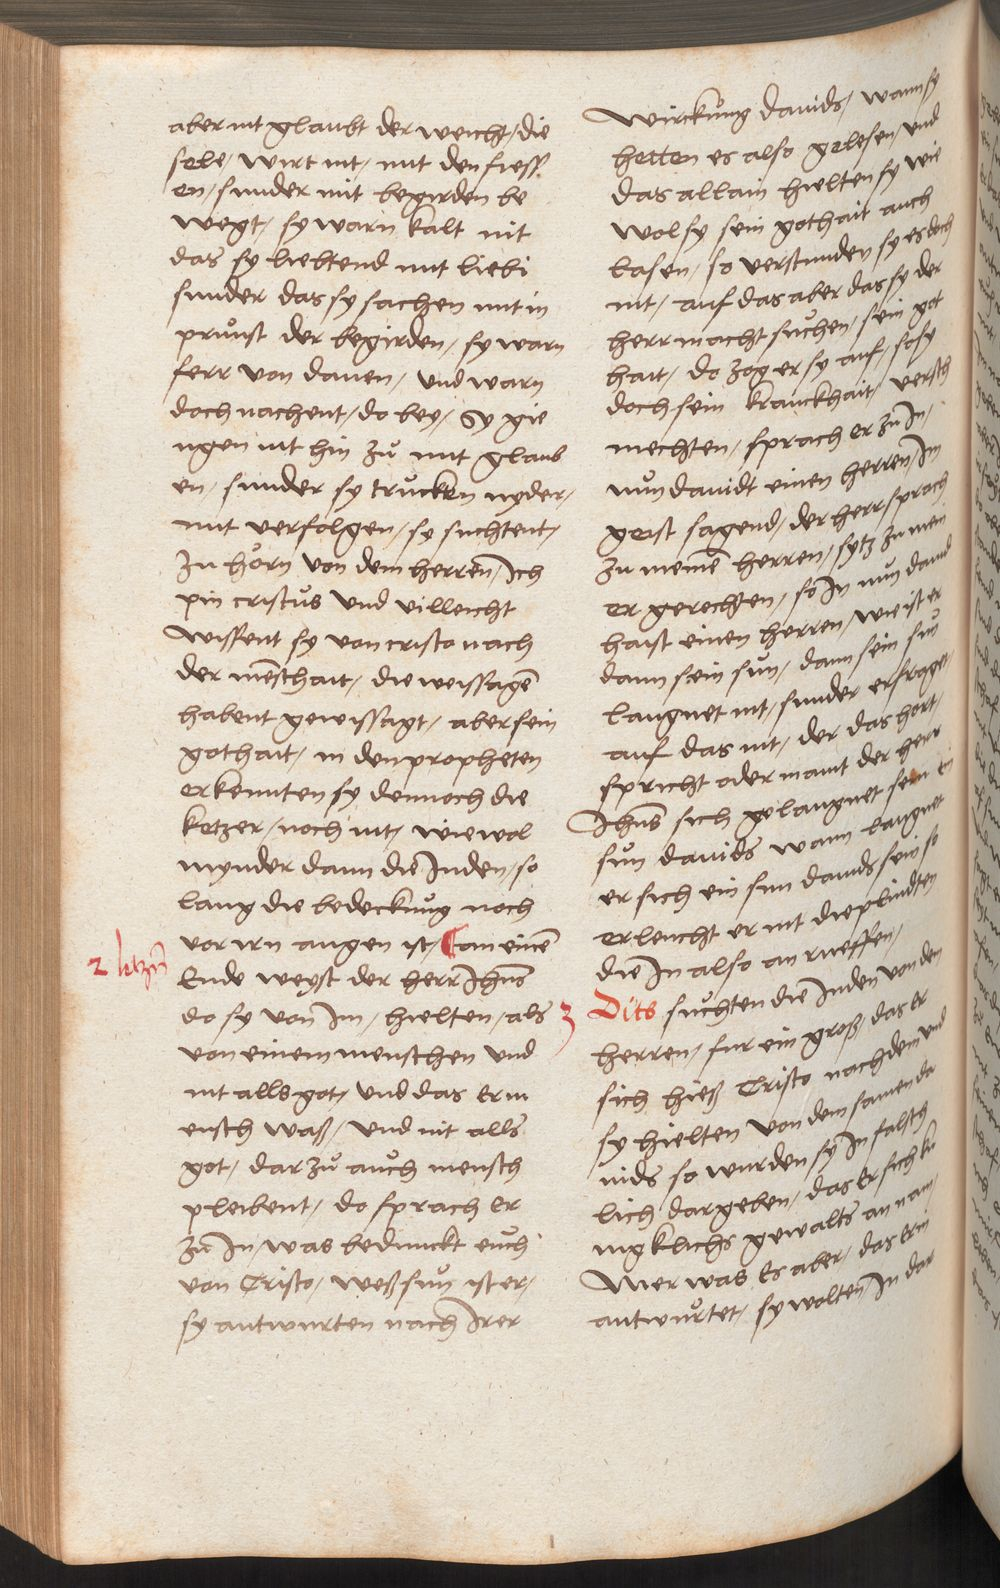 aber nit glaubt der weicht / die
sele / wirt nit / mit den fiess
en / sunder mit begirden be
wegt / sy warn kalt nit
das sy liebtend mit liebi
sunder das sy sachen mit in
prunst der begirden / sy warn
ferr von danen / und warn
doch nachent / do bey / sy gie
ngen nit hin zů mit glaub
en / sunder sy truckten nyder /
mit verfolgen / sy suchtent /
zu hörn von dem herren / Ich
pin cristus und villeicht
wissent sy von cristo nach
der mēschait / die weissagē
habent gewissagt / aber sein
gothait / in den propheten
erkennten sy dennoch die
ketzer / noch nit / wiewol
mynder dann die Juden / so
lang die bedeckung noch
vor irn augen ist / an einē
2 letzñ
Ende weyst der herr Jhūs
do sy von Im / hielten / als
von einem menschen und
nit alls got / und das er m
ensch waß / und nit alls
got / darzů auch mensch
pleibent / do sprach er
zu In / was bedunckt euch
von Cristo / weß sun ist er /
sy antwurten nach Irer
wirckung dauids / wann sy
hetten es also gelesen / und
das allain hielten sy wie
wol sy sein gothait auch
lasen / so verstunden sy es doch
nit / auf das aber das sy der
herr macht suchen / sein got
hait / do zog er sy auf / so sy
doch sein kranckhait / versch
mechten / sprach er zu In /
nun dauidt einen herren / Im
geist sagend / der herr sprach
zu meinē herren / sytz zu mein
er gerechten / so In nun dauid
haist einen herren / wie ist er
dann sein sun / dann sein sun
laugnet nit / sunder er fraget /
auf das nit / der das hort /
spricht oder maint der herr
Jhūs sich gelaugnet sein ein
sun dauids wann laugnet
er sich ein sun dauids sein so
erleucht er nit die plindten
die In also an rueffen /
3 Dits suchten die Juden von den
herren / fur ein groß / das er
sich hieß Cristo nach dem und
sy hielten von dem samen da
uids so wurden sy In falsch
lich dargeben / das er sich kü
nigklichs gewalts an nam /
Wer was Es aber / das er in
antwurtet / sy wolten In dar